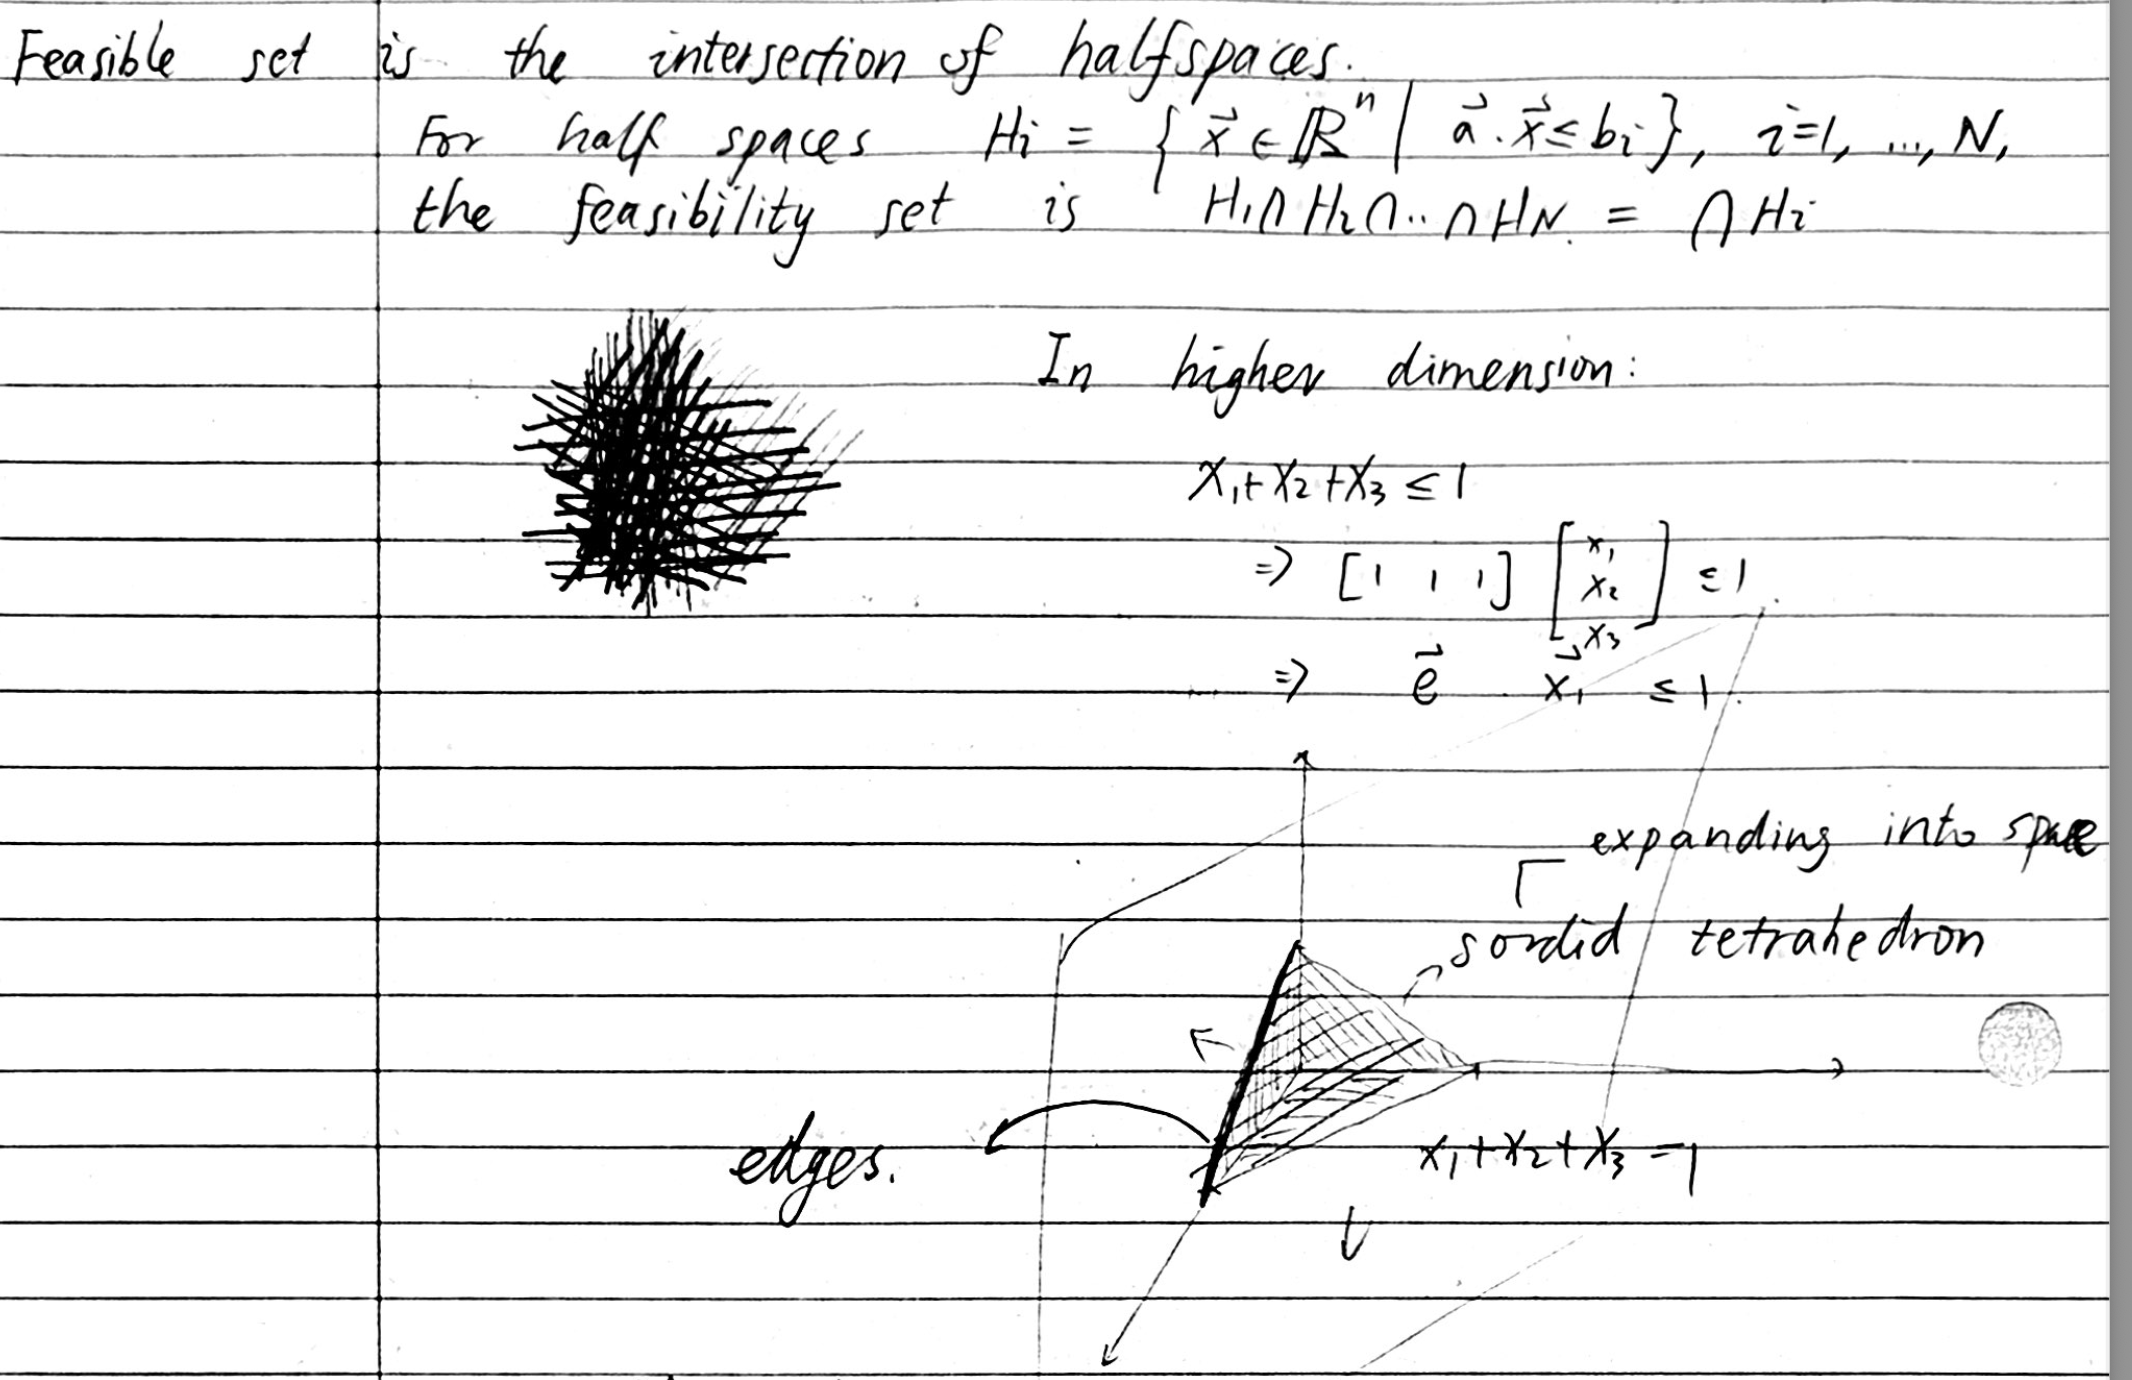 Feasible set is the intersection of halfspaces.
For half spaces Hi = { x⃗ ∈ ℝⁿ | a⃗ . x⃗ ≤ bi }, i=1, ..., N,
the feasibility set is H₁∩H₂∩..∩HN. = ∩Hi
In higher dimension:
x₁+x₂+x₃ ≤ 1
=> [1 1 1] [x₁ x₂ x₃] ≤ 1
=> e⃗ x⃗₁ ≤ 1.
expanding into space
sordid tetrahedron
edges.
x₁+x₂+x₃ = 1